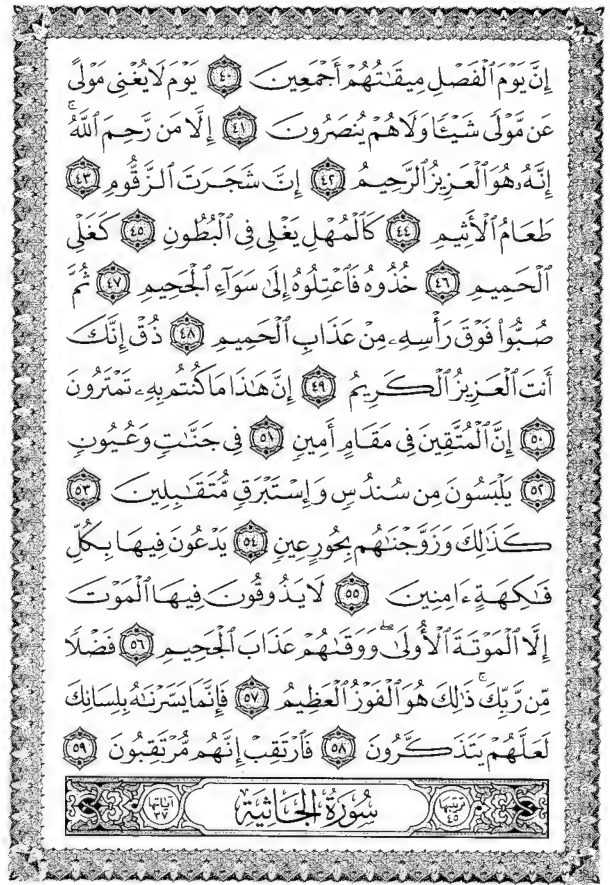 إِنَّ يَوْمَ ٱلْفَصْلِ مِيقَٰتُهُمْ أَجْمَعِينَ ٤٠ يَوْمَ لَا يُغْنِى مَوْلًى
عَن مَّوْلًى شَيْـًٔا وَلَا هُمْ يُنصَرُونَ ٤١ إِلَّا مَن رَّحِمَ ٱللَّهُ ۚ
إِنَّهُۥ هُوَ ٱلْعَزِيزُ ٱلرَّحِيمُ ٤٢ إِنَّ شَجَرَتَ ٱلزَّقُّومِ ٤٣
طَعَامُ ٱلْأَثِيمِ ٤٤ كَٱلْمُهْلِ يَغْلِى فِى ٱلْبُطُونِ ٤٥ كَغَلْىِ
ٱلْحَمِيمِ ٤٦ خُذُوهُ فَٱعْتِلُوهُ إِلَىٰ سَوَآءِ ٱلْجَحِيمِ ٤٧ ثُمَّ
صُبُّوا۟ فَوْقَ رَأْسِهِۦ مِنْ عَذَابِ ٱلْحَمِيمِ ٤٨ ذُقْ إِنَّكَ
أَنتَ ٱلْعَزِيزُ ٱلْكَرِيمُ ٤٩ إِنَّ هَٰذَا مَا كُنتُم بِهِۦ تَمْتَرُونَ
٥٠ إِنَّ ٱلْمُتَّقِينَ فِى مَقَامٍ أَمِينٍ ٥١ فِى جَنَّٰتٍ وَعُيُونٍ
٥٢ يَلْبَسُونَ مِن سُندُسٍ وَإِسْتَبْرَقٍ مُّتَقَٰبِلِينَ ٥٣
كَذَٰلِكَ وَزَوَّجْنَٰهُم بِحُورٍ عِينٍ ٥٤ يَدْعُونَ فِيهَا بِكُلِّ
فَٰكِهَةٍ ءَامِنِينَ ٥٥ لَا يَذُوقُونَ فِيهَا ٱلْمَوْتَ
إِلَّا ٱلْمَوْتَةَ ٱلْأُولَىٰ ۖ وَوَقَىٰهُمْ عَذَابَ ٱلْجَحِيمِ ٥٦ فَضْلًا
مِّن رَّبِّكَ ۚ ذَٰلِكَ هُوَ ٱلْفَوْزُ ٱلْعَظِيمُ ٥٧ فَإِنَّمَا يَسَّرْنَٰهُ بِلِسَانِكَ
لَعَلَّهُمْ يَتَذَكَّرُونَ ٥٨ فَٱرْتَقِبْ إِنَّهُم مُّرْتَقِبُونَ ٥٩
ترتيبها ٤٥ سُورَةُ الجَاثِيَةِ آياتها ٣٧